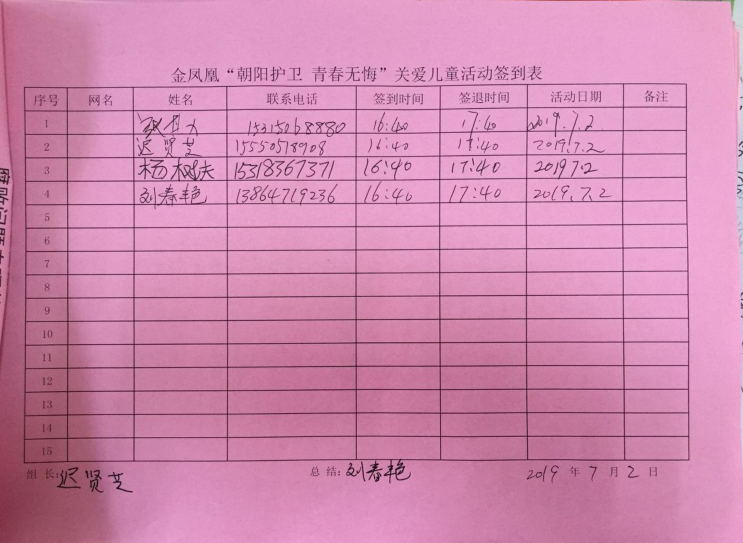 金凤凰“朝阳护卫 青春无悔”关爱儿童活动签到表
序号 网名 姓名 联系电话 签到时间 签退时间 活动日期 备注
1 15315068880 16:40 17:40 2019.7.2
2 迟贤芝 15550518908 16:40 17:40 2019.7.2
3 杨树庆 15318367371 16:40 17:40 2019 7.2
4 刘春艳 13864719236 16:40 17:40 2019.7.2
5
6
7
8
9
10
11
12
13
14
15
组 长: 迟贤芝 总 结: 刘春艳 2019 年 7 月 2 日